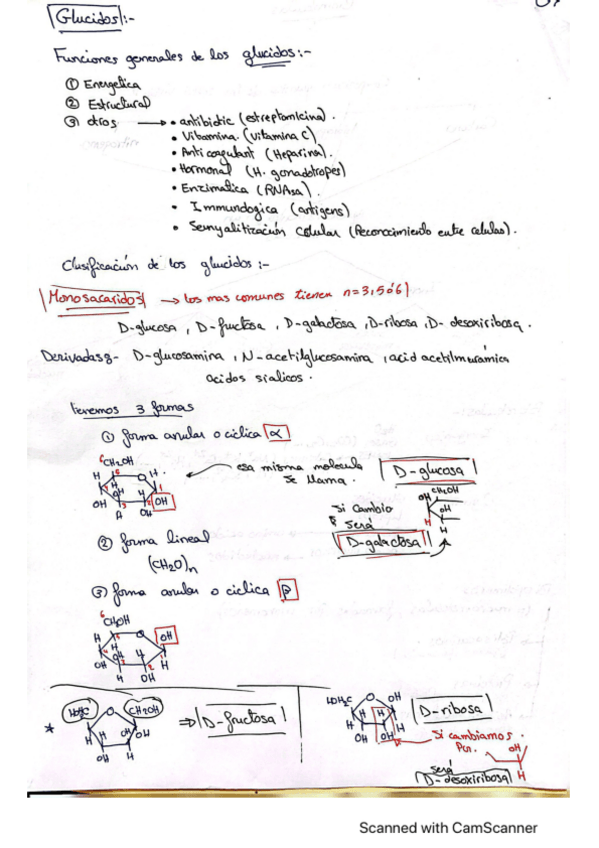 Glucidos:-
Funciones generales de los glucidos:-
① Energetica
② Estructural
③ otros → • antibiotic (estreptomicina).
• Vitamina. (vitamina C)
• Anti coagulant (Heparina).
• Hormonal (H. gonadotropes)
• Enzimatica (RNAsa).
• Immundogica (antigens)
• Senyalitización Celular (Reconocimiento entre celulas).
Clasificación de los glucidos:-
Monosacaridos → los mas comunes tienen n=3,5ó6
D-glucosa, D-fructosa, D-galactosa, D-ribosa, D-desoxiribosa.
Derivadas:- D-glucosamina, N-acetilglucosamina, acid acetilmurámico
acidos sialicos.
tenemos 3 formas
① forma anular o ciclica α
esa misma molecula
se llama.
D-glucosa
6 CH2OH
H O H
OH H OH
H OH
Si Cambio
será
D-galactosa
CH2OH
OH
OH
H
H
② forma lineal
(CH2O)n
③ forma anular o ciclica β
6 CH2OH
H O OH
OH H H
H OH
* HOH2C O CH2OH
H H OH OH
OH H
⇒ D-fructosa
HOH2C O OH
H H H H
OH OH
D-ribosa
Si cambiamos
Por.
OH
H
será
D-desoxiribosa
Scanned with CamScanner